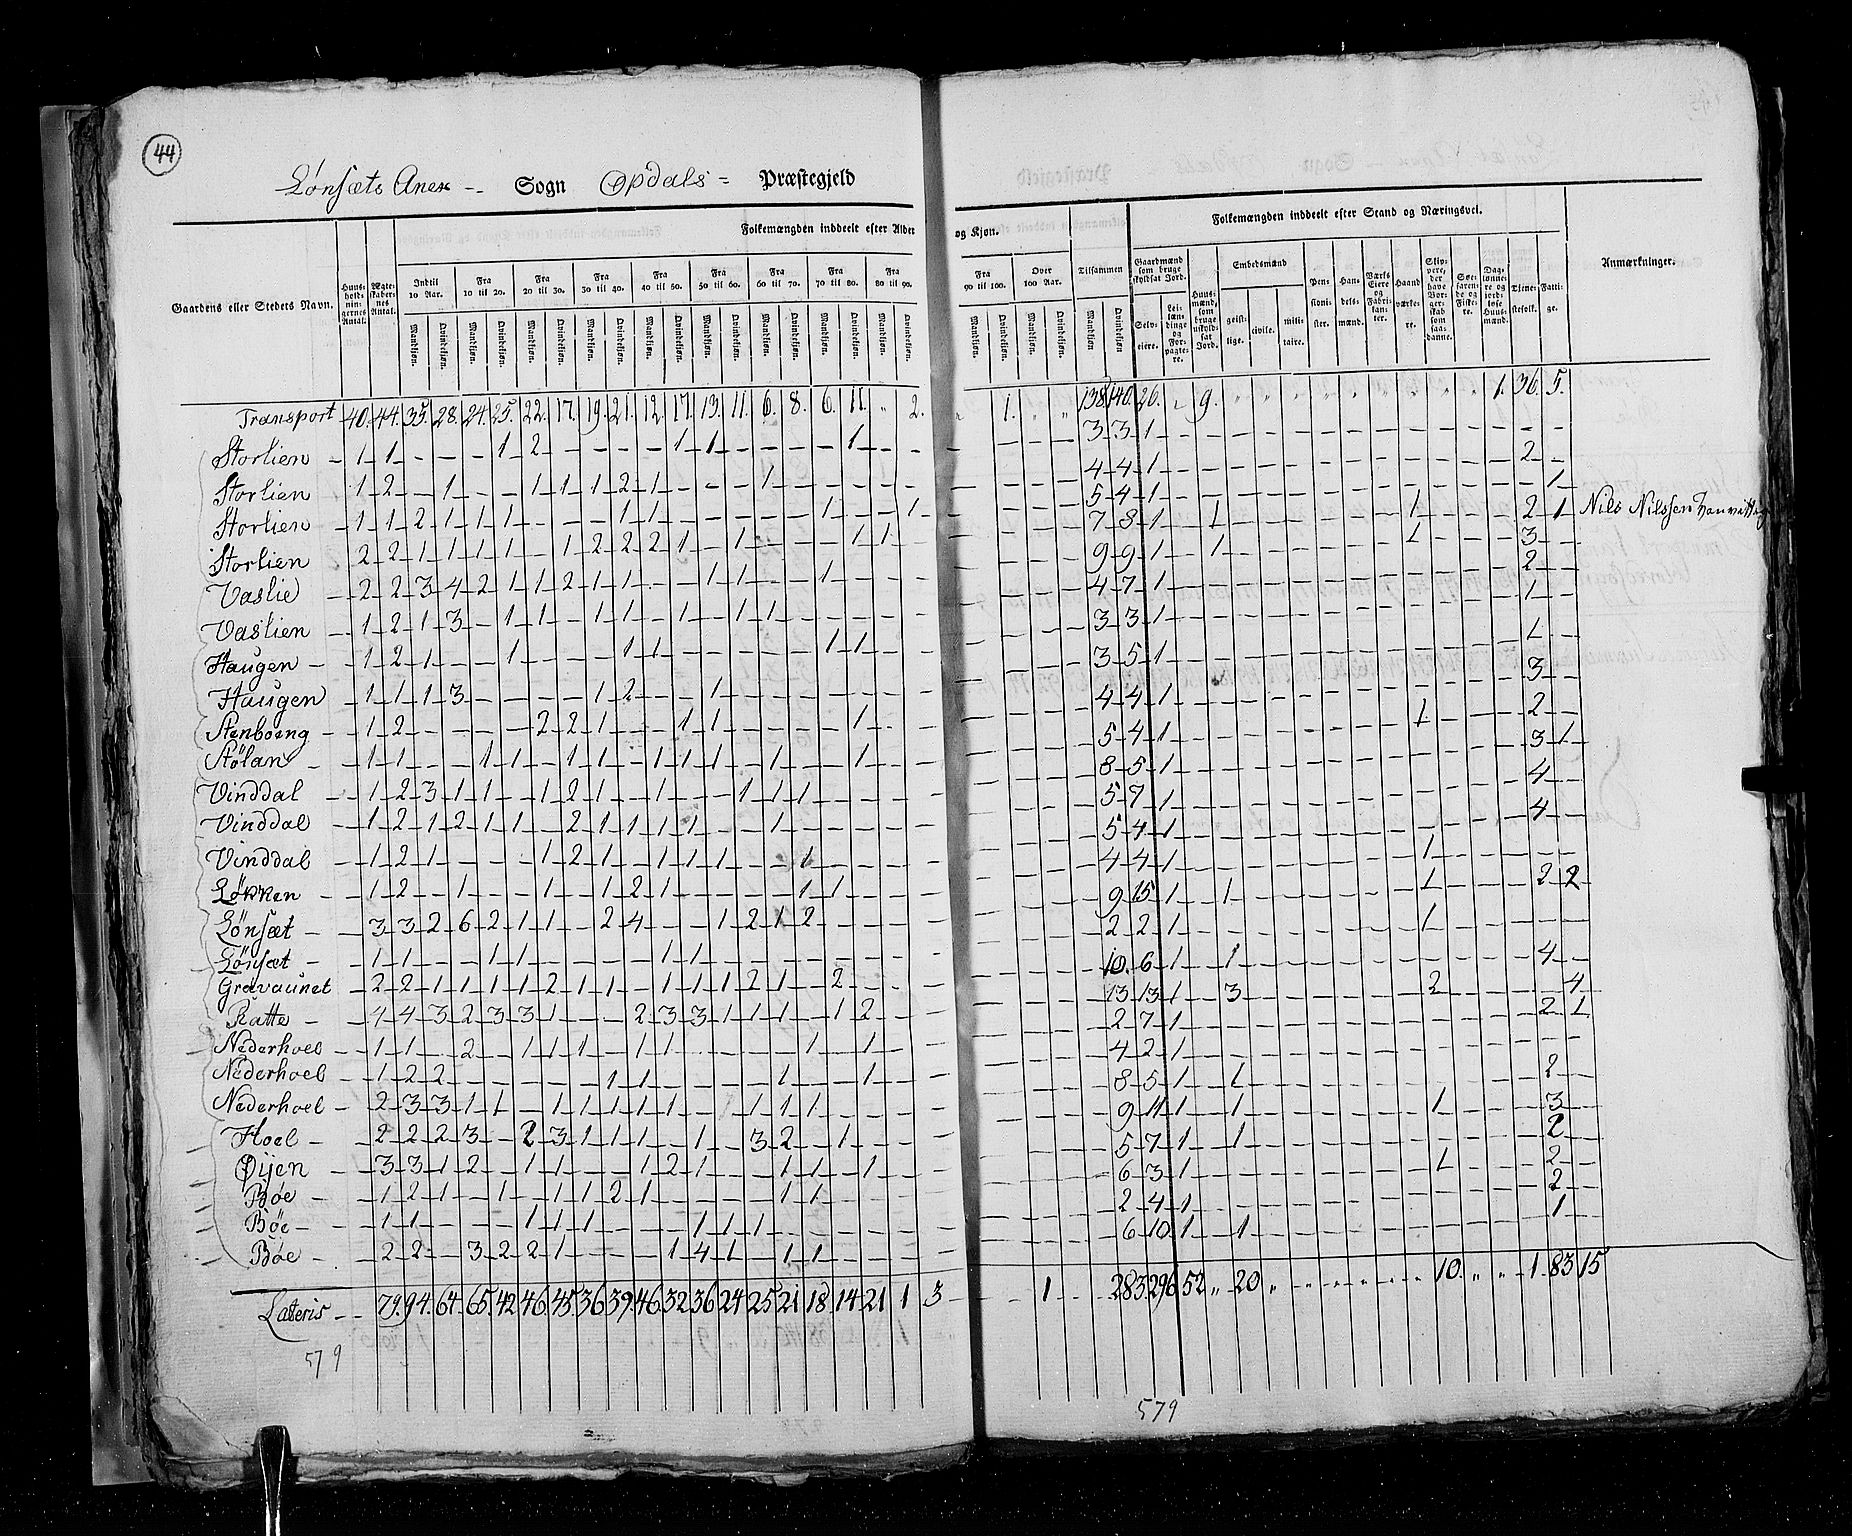 44
Lønsæts Anex -- Sogn Opdals = Præstegjeld
Gaardens eller Stedets Navn.
Huus-holdnin-gernes Antal.
Ægte-skaber-nes Antal.
Folkemængden inddeelt efter Alder og Kjøn.
Indtil 10 Aar. Fra 10 til 20. Fra 20 til 30. Fra 30 til 40. Fra 40 til 50. Fra 50 til 60. Fra 60 til 70. Fra 70 til 80. Fra 80 til 90. Fra 90 til 100. Over 100 Aar. Tilsammen
Mandkjøn. Qvindekjøn.
Folkemængden inddeelt efter Stand og Næringsvei.
Gaardmænd som bruge skyldsat Jord.
Selv-eiere.
Lei-læn-dinge og For-pagte-re.
Huus-mænd, som bruge uskyld-sat Jord.
Embedsmænd
geist-lige. civile. mili-taire.
Pen-sioni-ster.
Han-dels-mænd.
Værks Eiere og Fabri-kan-ter.
Haand-værke-re.
Søe-farende og Fiske-re.
Tjene-stefolk.
Fatti-ge.
Anmærkninger.
Transport 40. 44. 35. 28. 24. 25. 22. 17. 19. 21. 12. 17. 13. 11. 6. 8. 6. 11. " 2. " 1. " " 138 140. 26. " 9. " " " " " " " " " 1. 36. 5.
Storlien 1 1 1 2 1 1 1 3 3 1 2
Storlien 1 2 1 1 1 1 2 1 1 4 4 1 1
Storlien 1 1 2 1 1 1 1 1 1 1 5 4 1 1 1 2 1 Nils Nilssen
Storlien 2 2 1 1 1 1 1 2 2 2 1 1 1 1 7 8 1 1 1 3
Vaslie 2 2 3 4 2 1 1 2 1 1 1 1 1 9 9 1 2
Vaslien 1 2 1 3 1 1 1 1 1 1 1 4 7 1 1
Haugen 1 2 1 1 1 1 1 1 3 3 1 1
Haugen 1 1 1 3 1 2 1 3 5 1 3
Stenboeng 1 2 2 2 1 1 1 1 4 4 1 1 2
Stølan 1 1 1 1 1 1 1 1 1 1 1 5 4 1 3 1
Vinddal 1 2 3 1 1 1 2 1 1 1 1 1 8 5 1 4
Vinddal 1 2 1 2 1 1 2 1 1 1 1 1 5 7 1 4
Vinddal 1 2 1 1 2 1 1 1 1 1 5 4 1 1
Løkken 1 2 1 1 1 2 1 1 1 4 4 1 1 2 2
Lønsæt 3 3 2 6 2 1 1 2 4 1 2 1 2 9 15 1 1 1
Lønsæt 1 1 1 1 1 1 2 2 1 4
Gravaunet 2 2 1 1 1 1 2 1 1 1 1 1 2 1 2 10. 6 1 1 2 4
Ratte 4 4 3 2 3 3 1 2 3 3 1 1 1 1 2 13 13 1 3 2 1
Nederhoel 1 1 2 1 1 1 1 1 1 1 2 7 1
Nederhoel 1 2 2 1 1 1 1 4 2 1 2
Nederhoel 2 3 3 1 1 1 1 1 1 1 1 1 1 8 5 1 1 1 3
Hoel 2 2 2 3 2 3 1 1 1 1 3 2 1 9 11 1 1 2
Øijen 3 3 1 2 1 1 1 2 1 1 1 1 5 7 1 1 1 2
Bøe 1 2 1 1 1 1 2 1 1 1 6 3 1 2
Bøe 1 1 1 1 1 1 1 1 2 4 1 1
Bøe 2 2 3 2 2 1 1 4 1 1 1 6 10. 1 1
Lateris 79. 94. 64. 65. 42. 46. 45. 36. 39. 46. 32. 36. 24. 25. 21. 18. 14. 21 1 3 1 283 296 52 " 20 " 10. " " 1. 83 15
579
579